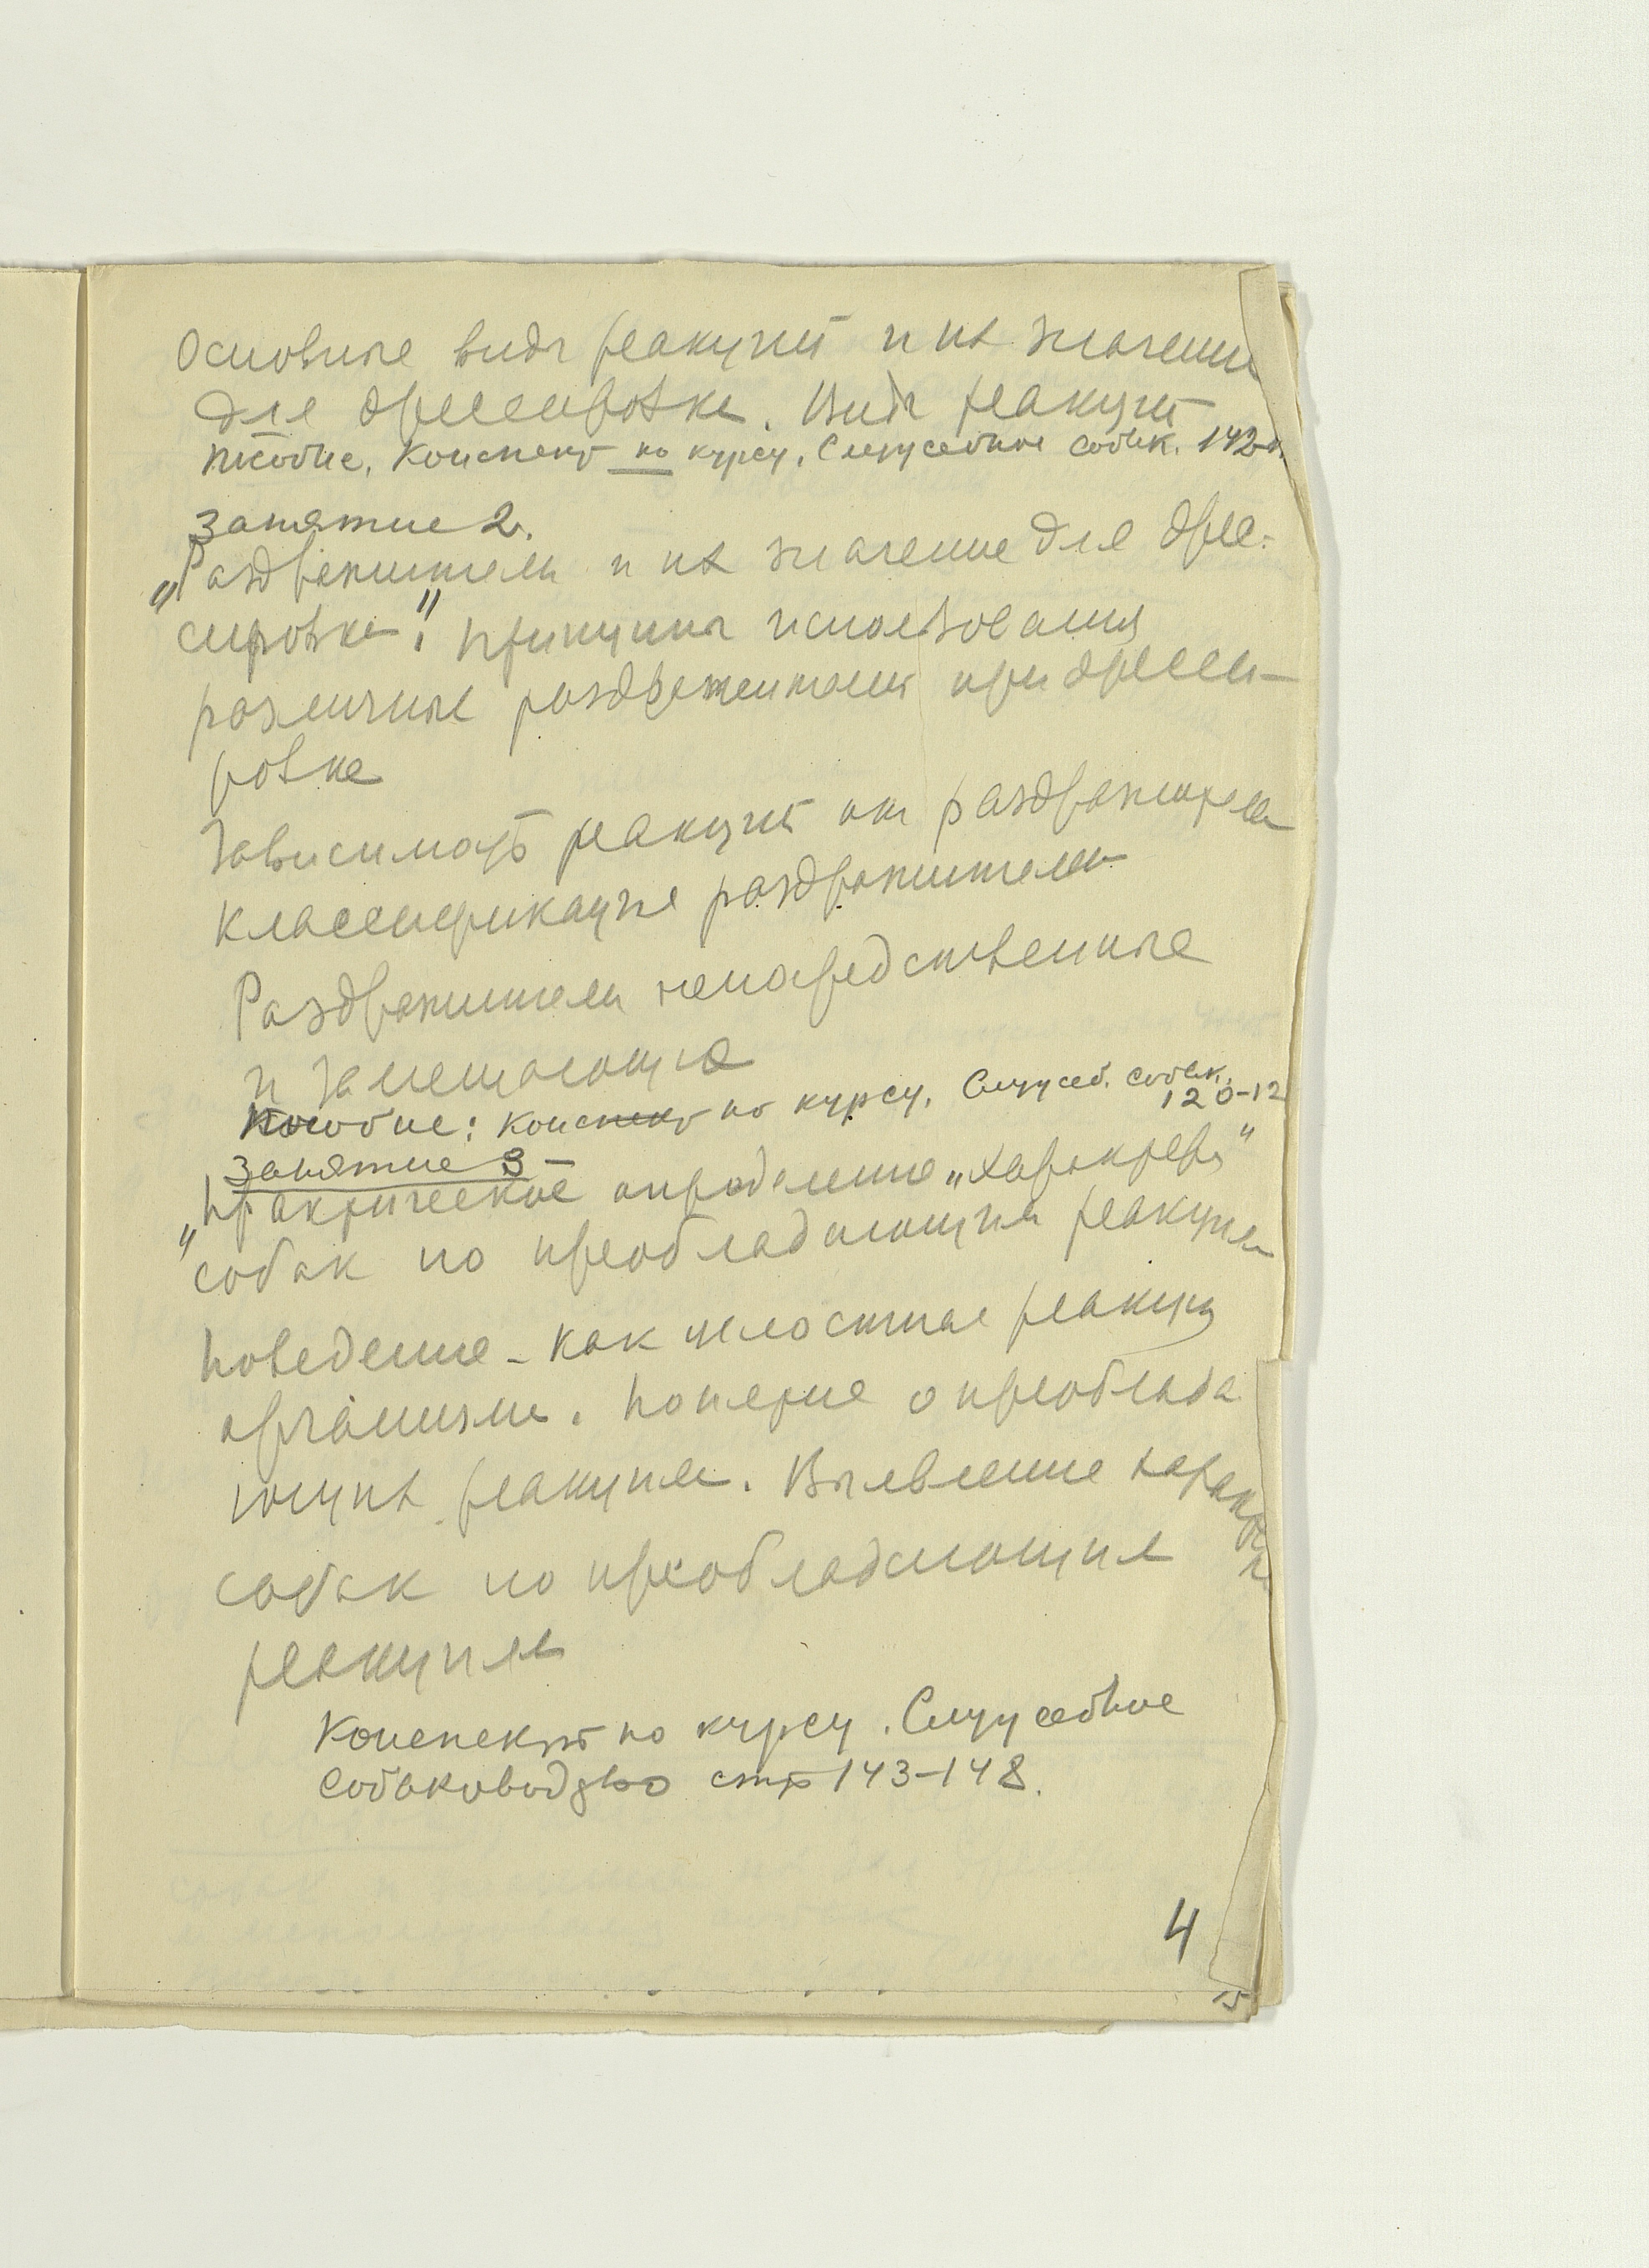 Основные виды реакций и их значение
для дрессировки. Виды реакций
Пособие. Конспект по курсу. Служебное собак. 142-
Занятие 2.
„Раздражители и их значение для дрес-
сировки". Принципы использования
различных раздражителей при дресси-
ровке
Зависимость реакций от раздражителя
Классификация раздражителей
Раздражители непосредственные
и замещающие
Пособие: Конспект по курсу. Служеб. собак.
120-12
Занятие 3
„Практическое определение „характера"
собак по преобладающим реакциям
Поведение - как целостная реакция
организма. Понятие о преоблада
ющих реакциях. Выявление характера
собак по преобладающим
реакциям
Конспект по курсу. Служебное
собаководство стр 143-148.
4
15